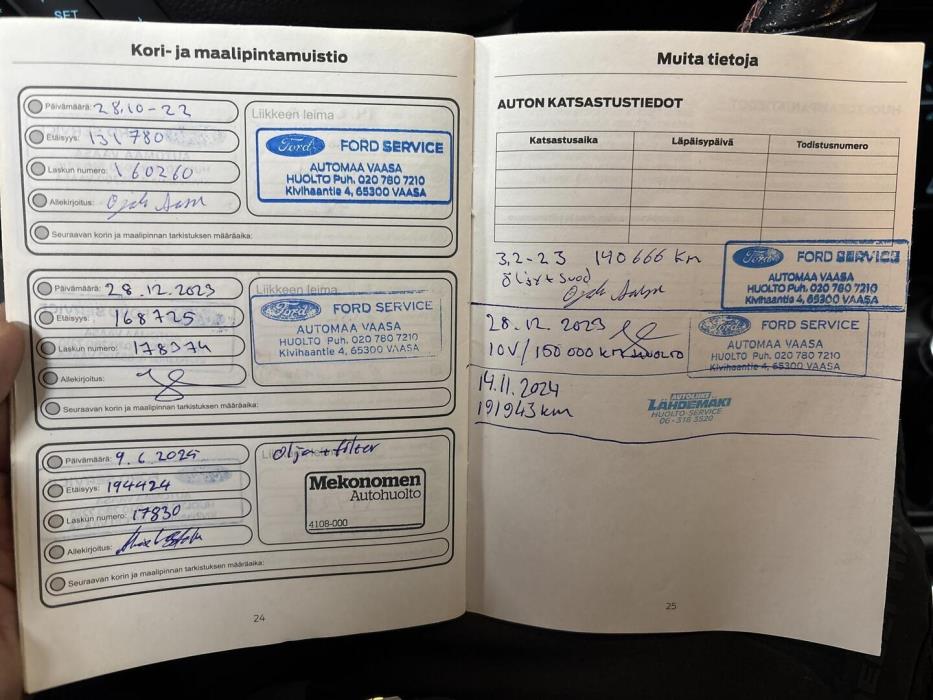 SET
Kori- ja maalipintamuistio
Päivämäärä: 28.10-22
Etäisyys: 131780
Laskun numero: 160260
Allekirjoitus:
Seuraavan korin ja maalipinnan tarkistuksen määräaika:
Liikkeen leima
Ford FORD SERVICE
AUTOMAA VAASA
HUOLTO Puh. 020 780 7210
Kivihaantie 4, 65300 VAASA
Päivämäärä: 28.12.2023
Etäisyys: 168725
Laskun numero: 178374
Allekirjoitus:
Seuraavan korin ja maalipinnan tarkistuksen määräaika:
Liikkeen leima
Ford FORD SERVICE
AUTOMAA VAASA
HUOLTO Puh. 020 780 7210
Kivihaantie 4, 65300 VAASA
Päivämäärä: 9.6 2025
Etäisyys: 194424
Laskun numero: 17830
Allekirjoitus:
Seuraavan korin ja maalipinnan tarkistuksen määräaika:
Olja + filter
Mekonomen
Autohuolto
4108-000
24
Muita tietoja
AUTON KATSASTUSTIEDOT
Katsastusaika Läpäisypäivä Todistusnumero
3.2-23 140666 km
Öljyt + suod
Ford FORD SERVICE
AUTOMAA VAASA
HUOLTO Puh. 020 780 7210
Kivihaantie 4, 65300 VAASA
28.12. 2023
10V/150 000 km HUOLTO
Ford FORD SERVICE
AUTOMAA VAASA
HUOLTO Puh. 020 780 7210
Kivihaantie 4, 65300 VAASA
14.11.2024
191943 km
AUTOLIIKE
LÄHDEMÄKI
HUOLTO-SERVICE
06-318 3520
25